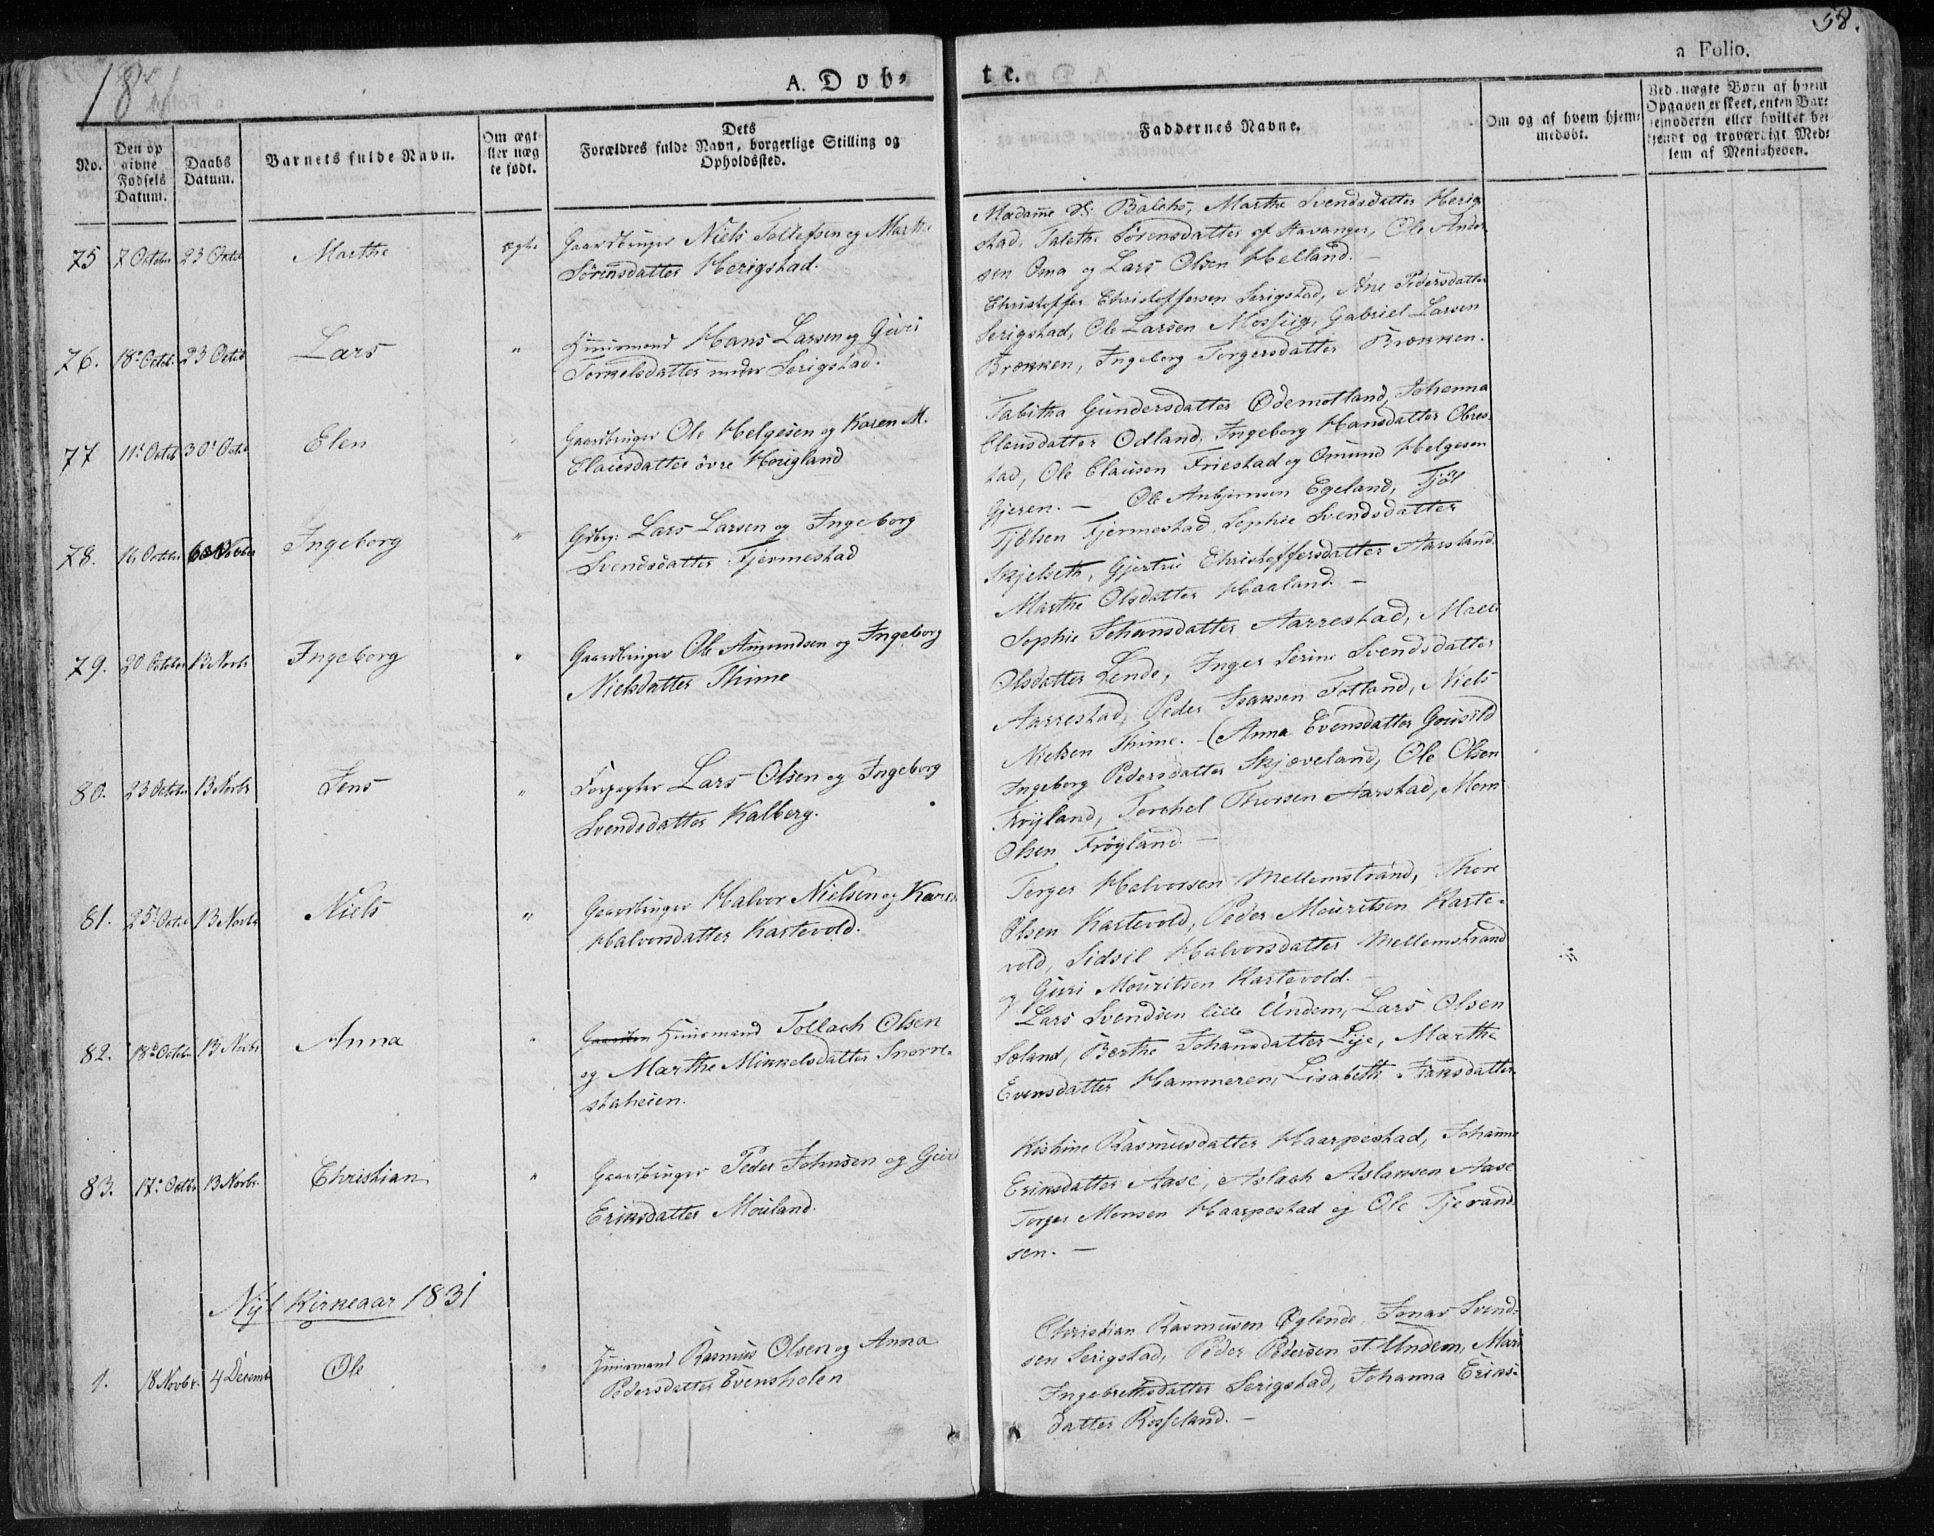 58.
18
A. Dob-
te.
a Folio.
No.
Den op
givne
Fødsels
Datum.
Daabs
Datum.
Barnets fulde Navn.
Om ægt-
eller uæg
te født.
Dets
Forældres fulde Navn, borgerlige Stilling og
Opholdssted.
Faddernes Navne.
Om og af hvem hjem-
medøbt.
Ved uægte Børn af hvem
Opgaven er skeet, enten Bar-
nemoderen eller hvilket be-
kjendt og troværdigt Med-
lem af Menigheden.
75 7 October 23 Octob Marthe ægte Gaardbruger Niels Tollefsen og Marthe
Sörensdatter Herigstad.
Madame Balchs, Marthe Svendsdatter Herig
stad. Talethe Sörensdatter af Stavanger, Ole Ander
sen Oma og Lars Olsen Helland. –
76. 18de Octob. 23 Octob Lars " Huusmand Hans Larsen og Guri
Torkelsdatter under Serigstad.
Christoffer Christoffersen Serigstad, Ane Pedersdatter
Serigstad, Ole Larsen Mossiig, Gabriel Larsen
Brækken, Ingeborg Torgersdatter Brækken.
77 11te Octob 30te Octob Elen " Gaardbruger Ole Helgesen og Karen M.
Clausdatter övre Hougland
Tabitha Gundersdatter Ödemotland, Johanna
Clausdatter Odland, Ingeborg Hansdatter Obres-
tad, Ole Clausen Friestad og Omund Helgesen
Gjeren. –
78. 16 Octobr 6 Novbr Ingeborg " Gdbr: Lars Larsen og Ingeborg
Svendsdatter Tjermestad
Ole Anbjørnsen Egeland, Tjöl
Tjölsen Tjermestad, Sophie Svendsdatter
Skjelseth, Gjertrü Christoffersdatter Aarsland
Marthe Olsdatter Haaland. –
79. 20 October 13 Novbr Ingeborg " Gaardbruger Ole Amundsen og Ingeborg
Nielsdatter Thime
Sophie Johansdatter Aarrestad, Malle
Olsdatter Lende, Inger Serine Svendsdatter
Aarrestad, Peder Isaksen Totland, Niels
Nielsen Thime. –
80. 23 Octobr 13 Novbr Jens " Forpagter Lars Olsen og Ingeborg
Svendsdatter Kalberg.
(Anna Evensdatter Gousild
Ingeborg Pedersdatter Skjæveland, Ole Olsen
Fröyland, Torchel Thorsen Aarstad, Mons
Olsen Fröyland –
81. 25de Octob 13 Novbr Niels " Gaardbruger Halvor Nielsen og Karen
Halvorsdatter Kartevold.
Torger Halvorsen Mellemstrand, Thore
Olsen Kartevold, Peder Mouritsen Karte-
vold, Sidsil Halvorsdatter Mellemstrand
og Guri Mouritsen Kartevold. –
82. 18de Octobr 13 Novbr Anna " Huusmand Tollach Olsen
og Marthe Mikkelsdatter Snorre-
staheien.
Lars Svendsen lille Undem, Lars Olsen
Soland, Berthe Johansdatter Lye, Marthe
Evensdatter Hammeren, Lisabeth Isaksdatter
83. 17de Octbr 13 Novbr. Christian " Gaardbruger Peder Johnsen og Guri
Eriksdatter Mouland.
Kistine Rasmusdatter Haarpestad, Johanne
Eriksdatter Aase, Aslach Aslaksen Aase
Torger Monsen Haarpestad og Ole Tjerand
sen. –
Nyt Kirkeaar 1831
1. 18 Novbr. 4 Decemb Ole " Huusmand Rasmus Olsen og Anna
Pedersdatter Evensholen
Christian Rasmussen Øglende, Jonas Svend-
sen Serigstad, Peder Pedersen st. Undem, Mari
Ingebretsdatter Serigstad, Johanna Eriks-
datter Rosseland. –